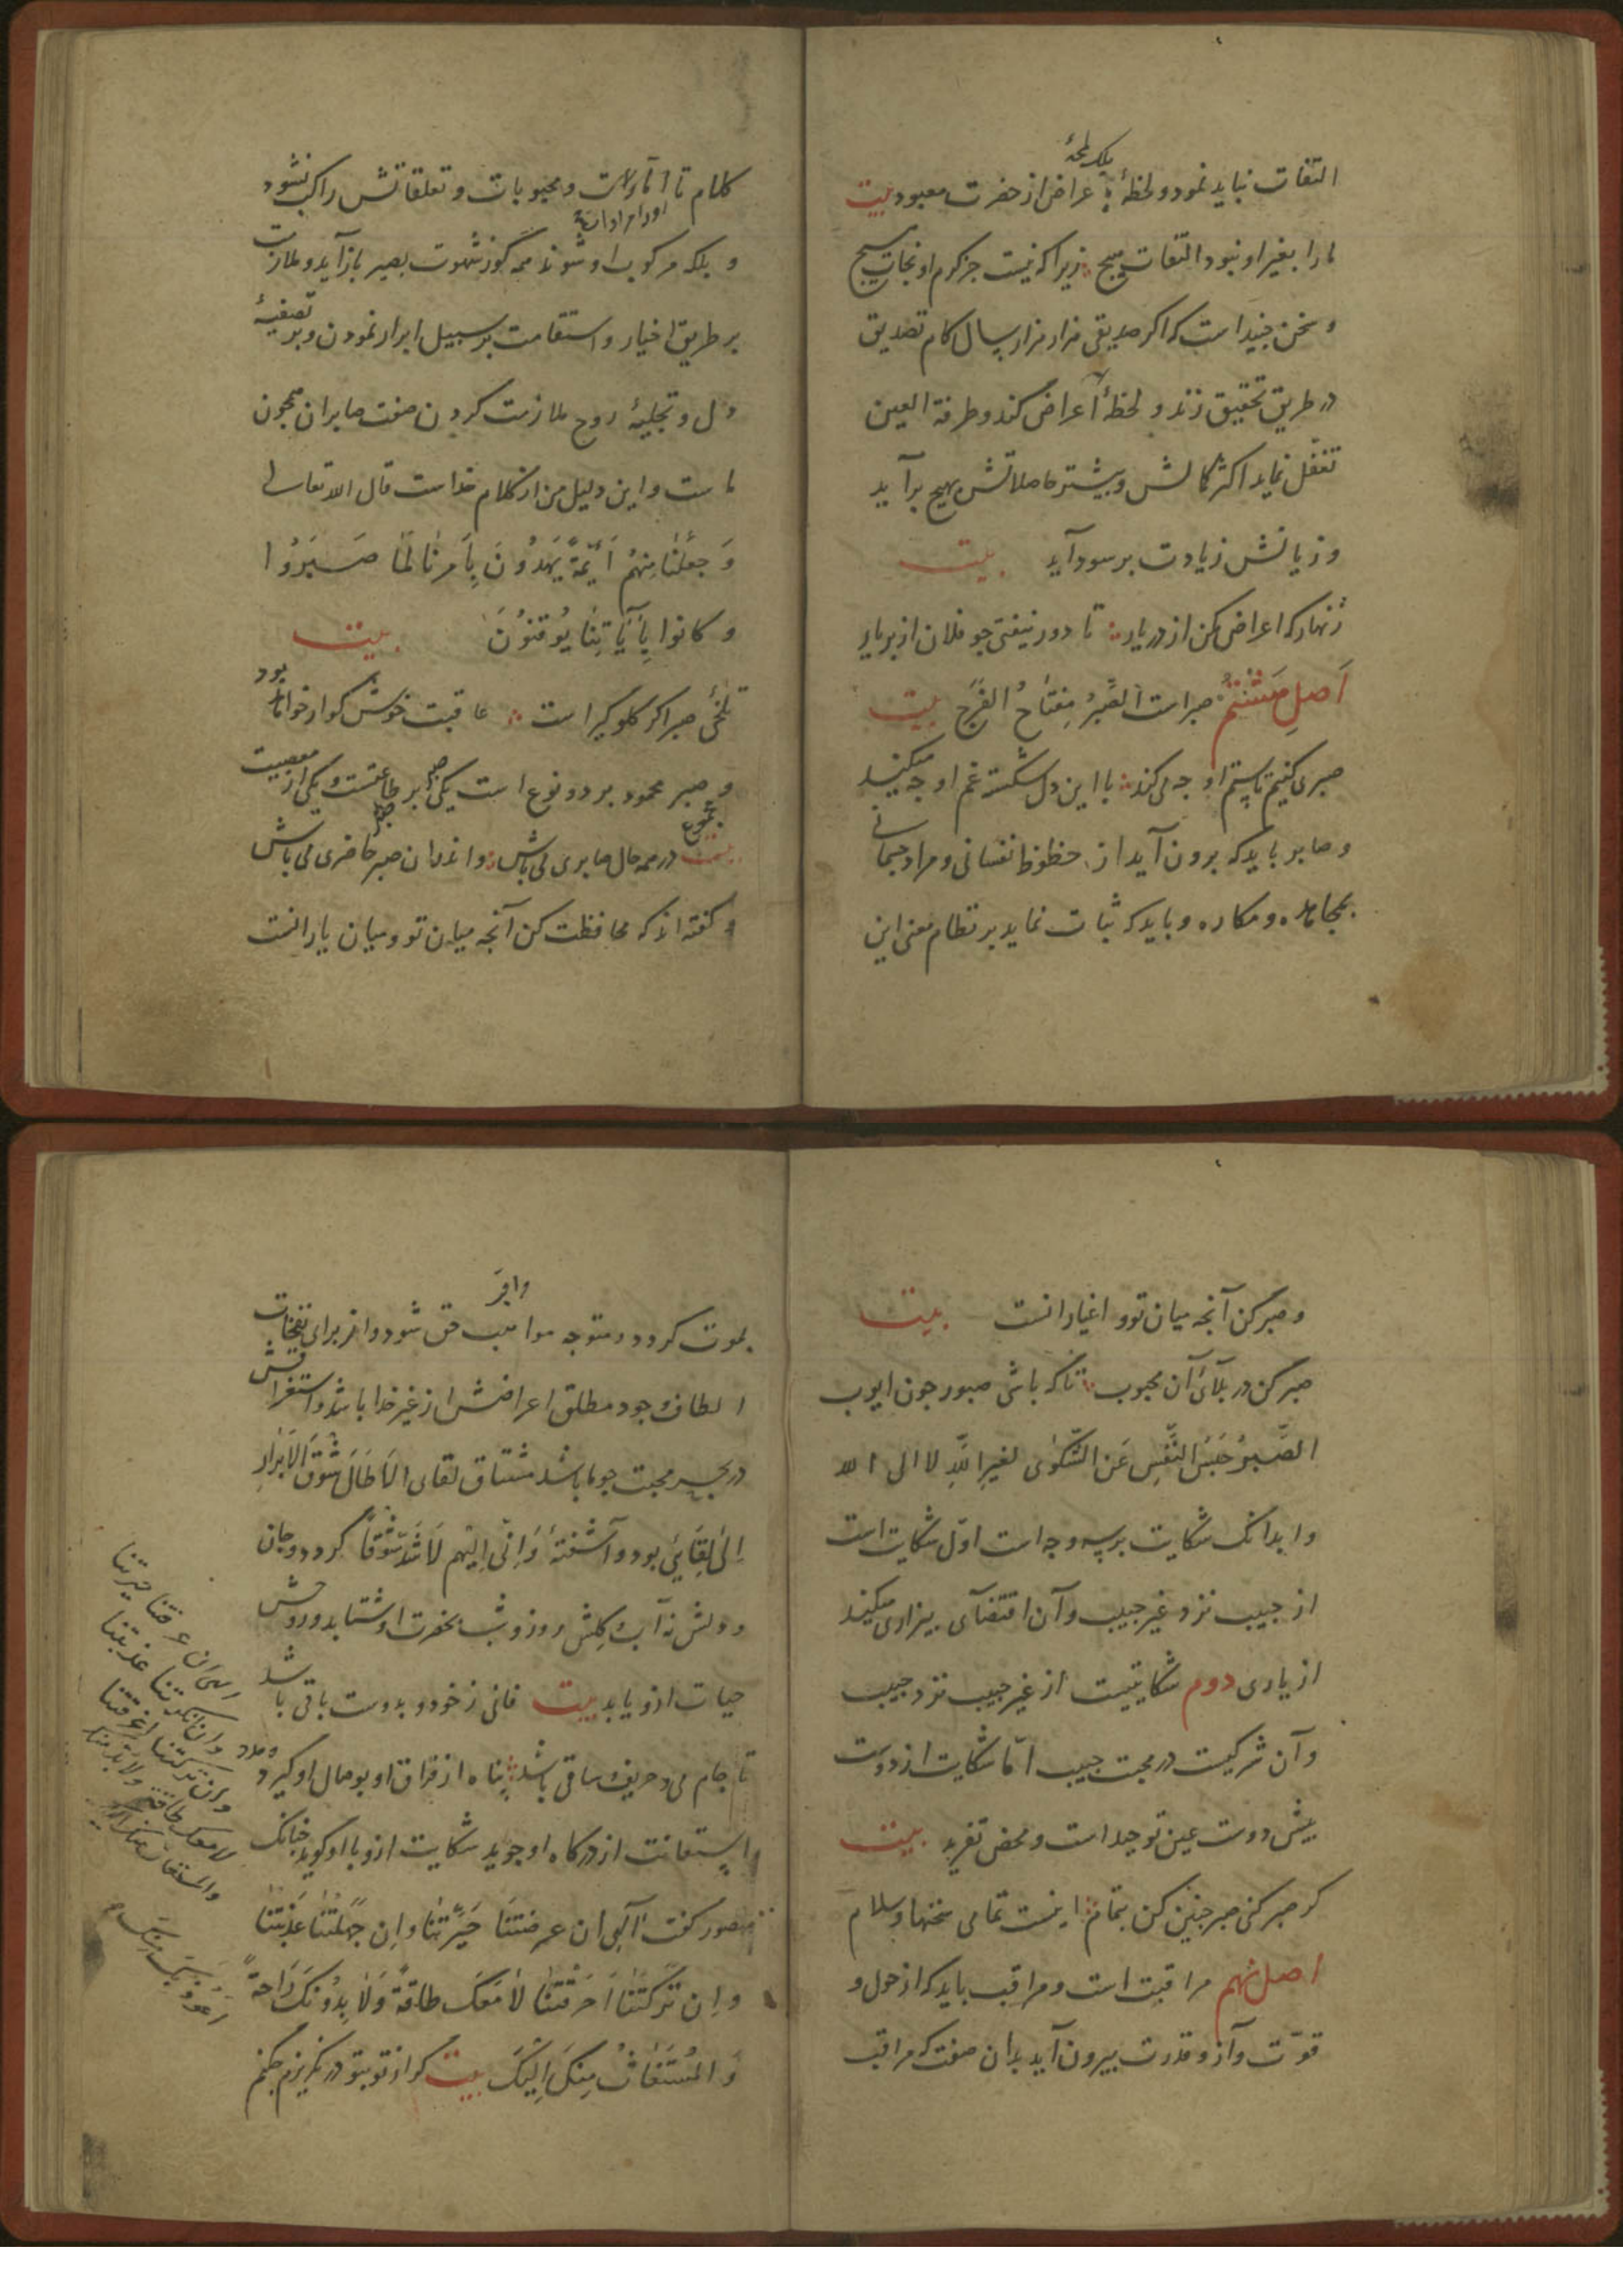 التفات نباید نمود و لحظهٔ بلکه لمحهٔ اعراض از حضرت معبود بیت
ما را بغیر او نبود التفات هیچ زیرا که نیست جز کرم او نجات هیچ
و سخن جنید است که اکر صدیقی هزار هزار سال کام تصدیق
در طریق تحقیق زند و لحظهٔ اعراض کند و طرفة العین
تغفل نماید اکثر کمالش و بیشتر حاصلاتش بهیچ برآید
و زیانش زیادت بر سود آید بیت
زنهار که اعراض مکن از در یار تا دور نیفتی جو فلان از بر یار
اصل هشتم صبر است الصَّبرُ مِفتاحُ الفَرَج بیت
صبری کنیم تا ستم او جه می کند با این دل شکسته غم او جه میکند
و صابر باید که برون آید از حظوظ نفسانی و مراد جسمانی
بمجاهده و مکاره و باید که ثبات نماید بر نظام معنی این
کلام تا از مألوفات و محبوبات و تعلقاتش راکب نشود
و بلکه مرکوب او شوند همه کوز شهوت بصبر باز آید و ملازمت
بر طریق اخیار و استقامت بر سبیل ابرار نمودن و بر تصفیهٔ
دل و تجلیهٔ روح ملازمت کردن صفت صابران همچون
ماست و این دلیل من از کلام خداست قال الله تعالی
وَجَعَلنا مِنهُم اَئِمَّةً یَهدُونَ بِاَمرِنا لَمّا صَبَرُوا
وَکانوا بِآیاتِنا یُوقِنُونَ بیت
تلخیٔ صبر اکر کلوکیر است عاقبت خوش کوار خواهد بود
و صبر محمود بر دو نوع است یکی صبر بر طاعتست و یکی صبر از معصیت
بیت در همه حال صابری می باش و اندران صبر حاضری می باش
و کفته اند که محافظت کن آنجه میان تو و میان یارانست
و صبر کن آنجه میان تو و اغیارانست بیت
صبر کن در بلائ آن محبوب تا که باشی صبور جون ایوب
الصَّبرُ حَبسُ النَّفسِ عَنِ الشَّکوی لغیرِ اللهِ لا الی الله
و ابدانک شکایت بر سه وجه است اوّل شکایت است
از حبیب نزد غیر حبیب و آن اقتضآی بیزاری میکند
از یاری دوم شکایتیست از غیر حبیب نزد حبیب
و آن شرکیست در محبت حبیب امّا شکایت از دوست
پیش دوست عین توحید است و محض تفرید بیت
کر صبر کنی صبر جنین کن بتمام اینست تمامی سخنها و سلام
اصل نهم مراقبت است و مراقب باید که از حول و
قوّت و آز و قدرت بیرون آید بدان صفت که مراقب
بموت کردد و متوجه مواهب حق شود و از برای نفحات
الطاف جود مطلق اعراضش از غیر خدا باشد و استغراقش
در بحر محبت جو ما باشد مشتاق لقای اَلا طالَ شَوقُ الاَبرارِ
اِلی لِقایی بود و آشفتهٔ وَاِنّی اِلَیهِم لَاَشَدُّ شَوقاً کردد و جان
و دلش نه آب و کلش روز و شب بحضرت او شتابد و روحش
حیات ازو یابد بیت فانی ز خود و بدوست باقی باشد
تا جام می و حریف ساقی باشد پناه از فراق او بوصال او کیرد و مدد
و استعانت از درکاه او جوید شکایت ازو با او کوید جنانک
منصور کفت الهی ان عرفتنا حَیَّرتَنا واِن جَهَلتَنا عَذَّبتَنا
واِن تَرَکتَنا اَحرَقتَنا لا مَعَکَ طاقةً وَلا بِدُونِکَ راحةً
وَالمُستَغاثُ مِنکَ اِلَیکَ بیت کر از تو بتو در نکریزم جکنم
الهی ان عرفتنا حیرتنا
وان انکرتنا عذبتنا
وان ترکتنا اغرقتنا
لا معک طاقة ولا بد منک
والمستغاث منک الیک
اعوذ بک منک